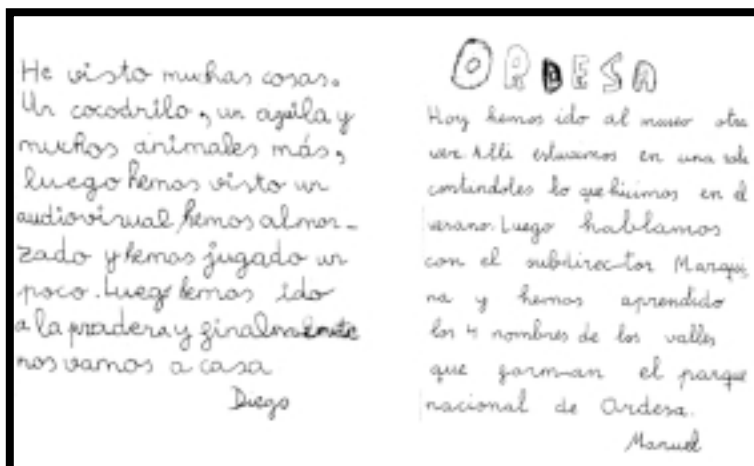 He visto muchas cosas.
Un cocodrilo, un aguila y
muchos animales más,
luego hemos visto un
audiovisual hemos almor-
zado y hemos jugado un
poco. Luego hemos ido
a la pradera y finalmente
nos vamos a casa
Diego
ORDESA
Hoy hemos ido al museo otra
vez. Alli estuvimos en una sala
contandoles lo que hicimos en el
verano. Luego hablamos
con el subdirector Marqui
na y hemos aprendido
los 4 nombres de los valles
que forman el parque
nacional de Ordesa.
Manuel